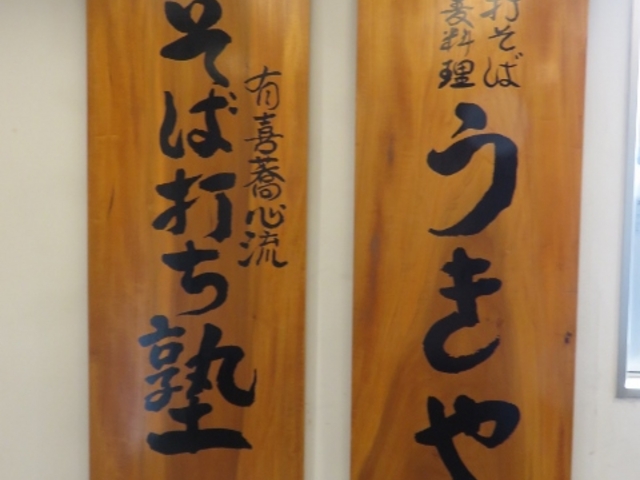 打そば
麦料理
うきや
有喜蕎心流
そば打ち塾